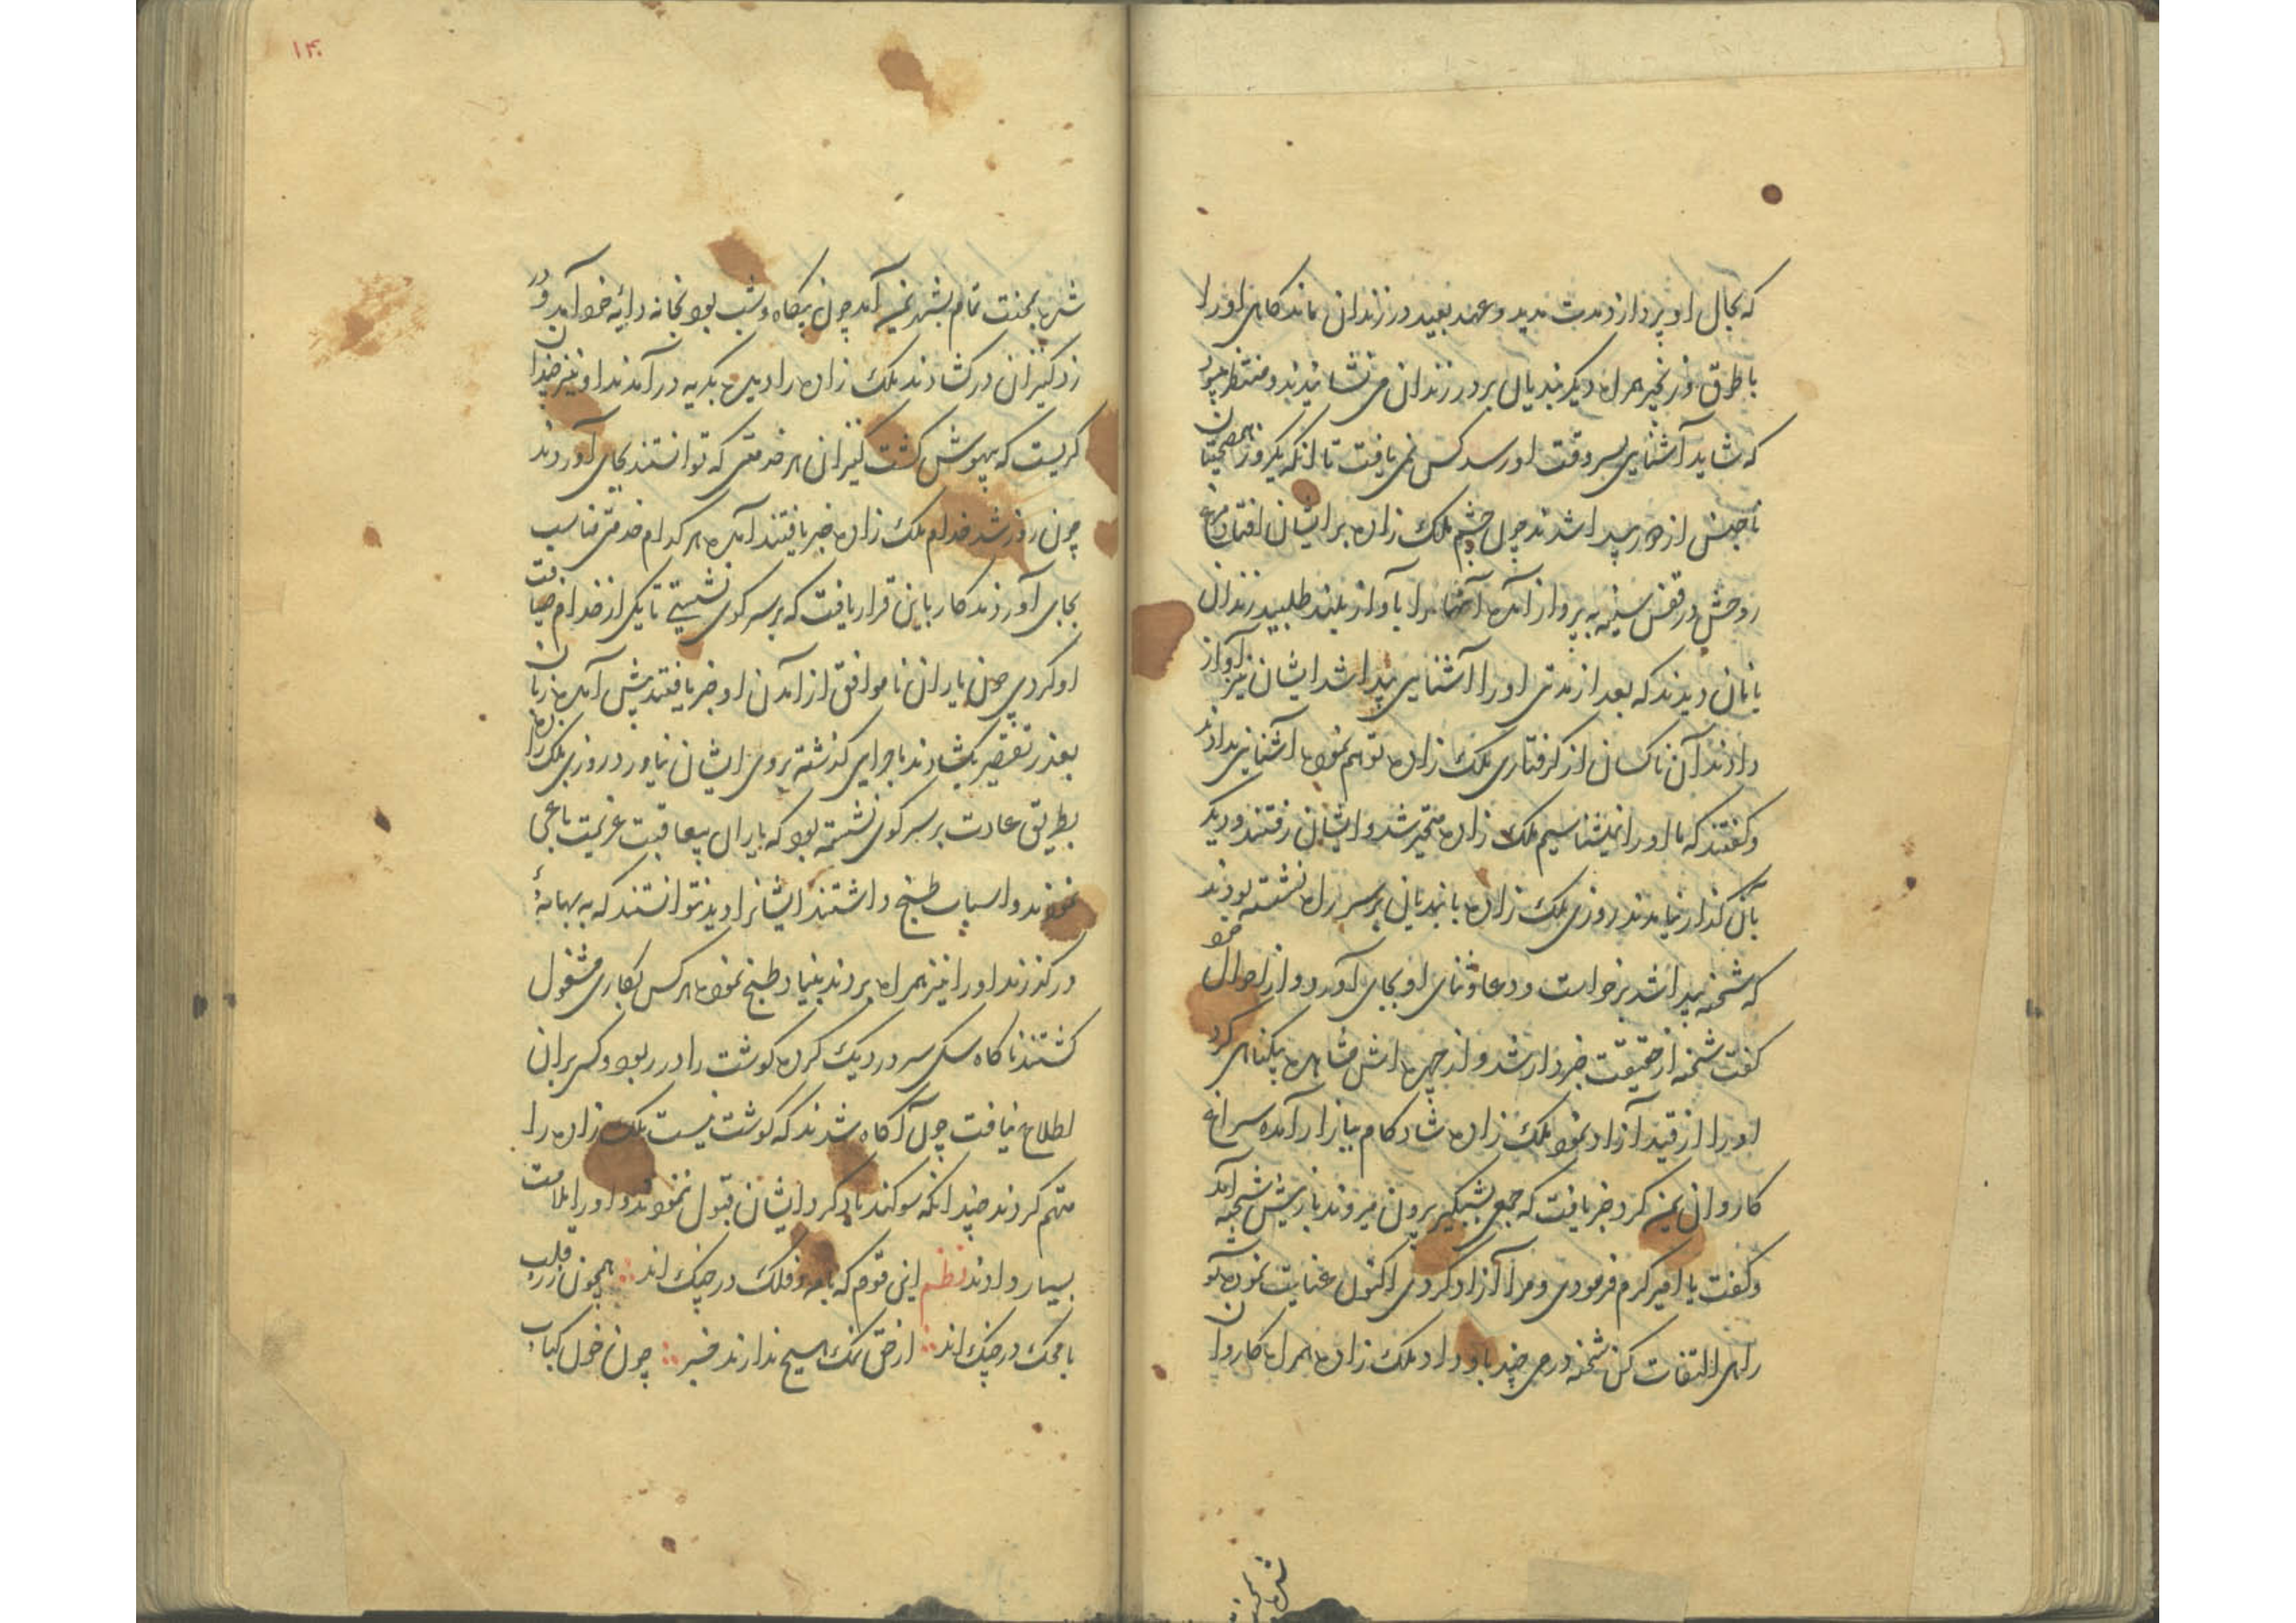 که بحال او پردازد مدت مدید و عهد بعید در زندان بماند کاهی او را
با طوق و زنجیر همراه دیکر بندیان بر در زندان می نشانیدند و منتظر می بود
که شاید آشنایی بسر وقت او رسد کس نمی یافت تا آنکه یکروز آن همصحبتان
ناجنس از دور پیدا شدند چون چشم ملک زاده بر ایشان افتاد مرغ
روحش در قفس سینه به پرواز آمده آنها را بآواز بلند طلبید زندان
بانان دیدند که بعد از مدتی او را آشنایی پیدا شد ایشان نیز آواز
دادند آن ناکسان از کرفتاری ملک زاده توهم نموده آشنایی ندادند
و کفتند که ما او را نمیشناسیم ملک زاده متحیر شد و ایشان رفتند و دیکر
بآن کذار نیامدند روزی ملک زاده با بندیان بر سر راه نشسته بودند
که شحنه پیدا شد برخواست و دعا و ثنای او بجای آورد و از احوال خود
کفت شحنه از حقیقت خبردار شد و از چهره اش مشاهده بیکناهی کرد
او را از قید آزاد نمود ملک زاده شاد کام ببازار آمده سراغ
کاروان یمن کرد خبر یافت که جمعی شبکیر برون میروند باز پیش شحنه آمد
و کفت یا امیر کرم فرمودی و مرا آزاد کردی اکنون عنایت نموده تو
راهی التفات کن شحنه درمی چند باو داد ملک زاده همراه کاروان
شهر بمحنت
۱۴۰
شهر بمحنت تمام بشهر یمن آمد چون بیکاه و شب بود بخانه دایه خود آمد و در
زد کنیزان در کشادند ملک زاده را دیده بکریه در آمدند او نیز چندان
کریست که بیهوش کشت کنیزان هر خدمتی که توانستند بجای آوردند
چون روز شد خدام ملک زاده خبر یافتند آمده هر کدام خدمتی مناسب
بجای آوردند کار باین قرار یافت که بر سر کوی نشستی تا یکی از خدام ضیافت
او کردی چون یاران ناموافق از آمدن او خبر یافتند پیش آمده زبان
بعذر تقصیر بکشادند ماجرای کذشته بروی ایشان نیاورد روزی ملک زاده
بطریق عادت بر سر کوی نشسته بود که یاران بیعاقبت عزیمت باغی
نمودند و اسباب طبخ داشتند ایشانرا دید نتوانستند که به بهانهٔ
در کذرند او را نیز همراه بردند بنیاد طبخ نموده هر کس بکاری مشغول
کشتند ناکاه سکی سر در دیک کرده کوشت را در ربود و کس بر آن
اطلاع نیافت چون آکاه شدند که کوشت نیست ملک زاده را
متهم کردند چندانکه سوکند یاد کرد ایشان قبول ننمودند و او را ملامت
بسیار دادند نظم این قوم که با مه و فلک در جنک اند همچون زر قلب
با محک در جنک اند از حق نمک هیچ ندارند خبر چون خون کباب